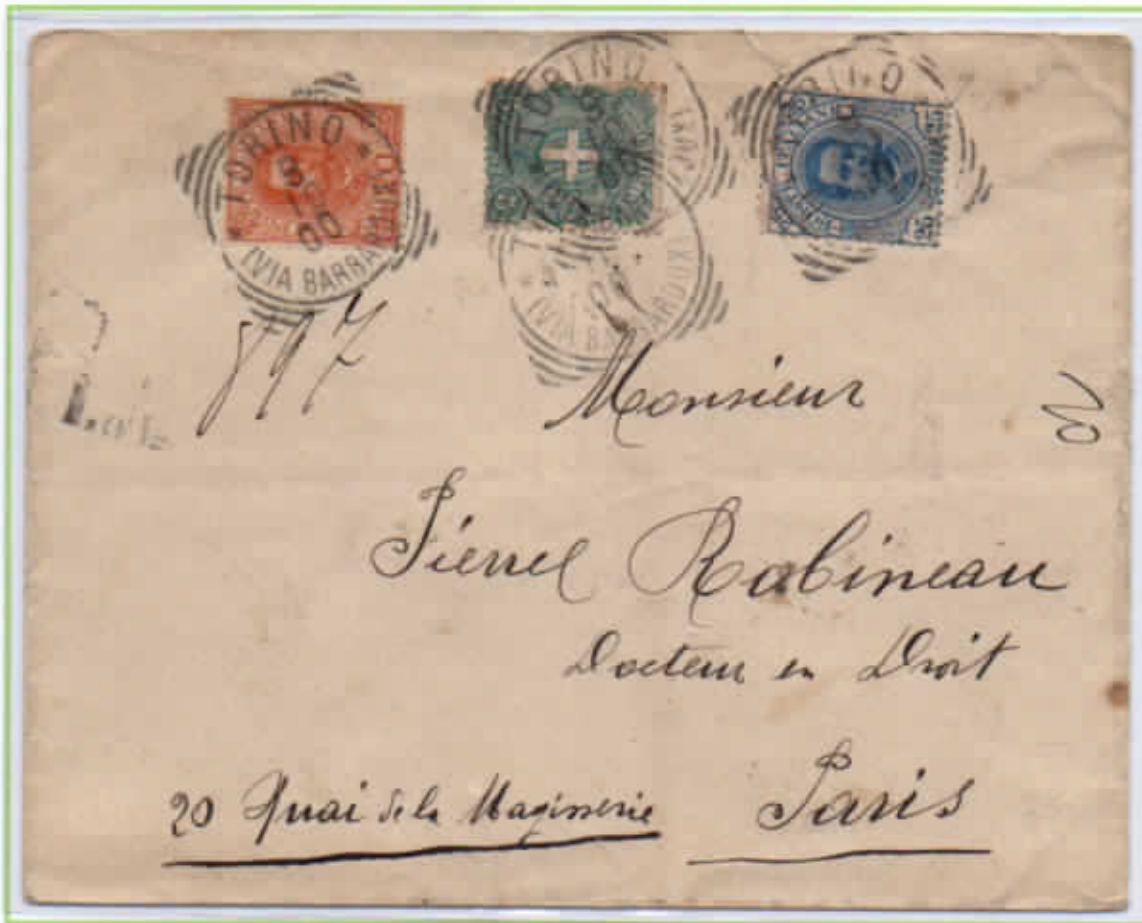 TORINO
9
00
(VIA BARBAROUX)
TORINO
9
(VIA BARBAROUX)
897
Monsieur
Pierre Robineau
Docteur en Droit
20 Quai de la Magisserie Paris